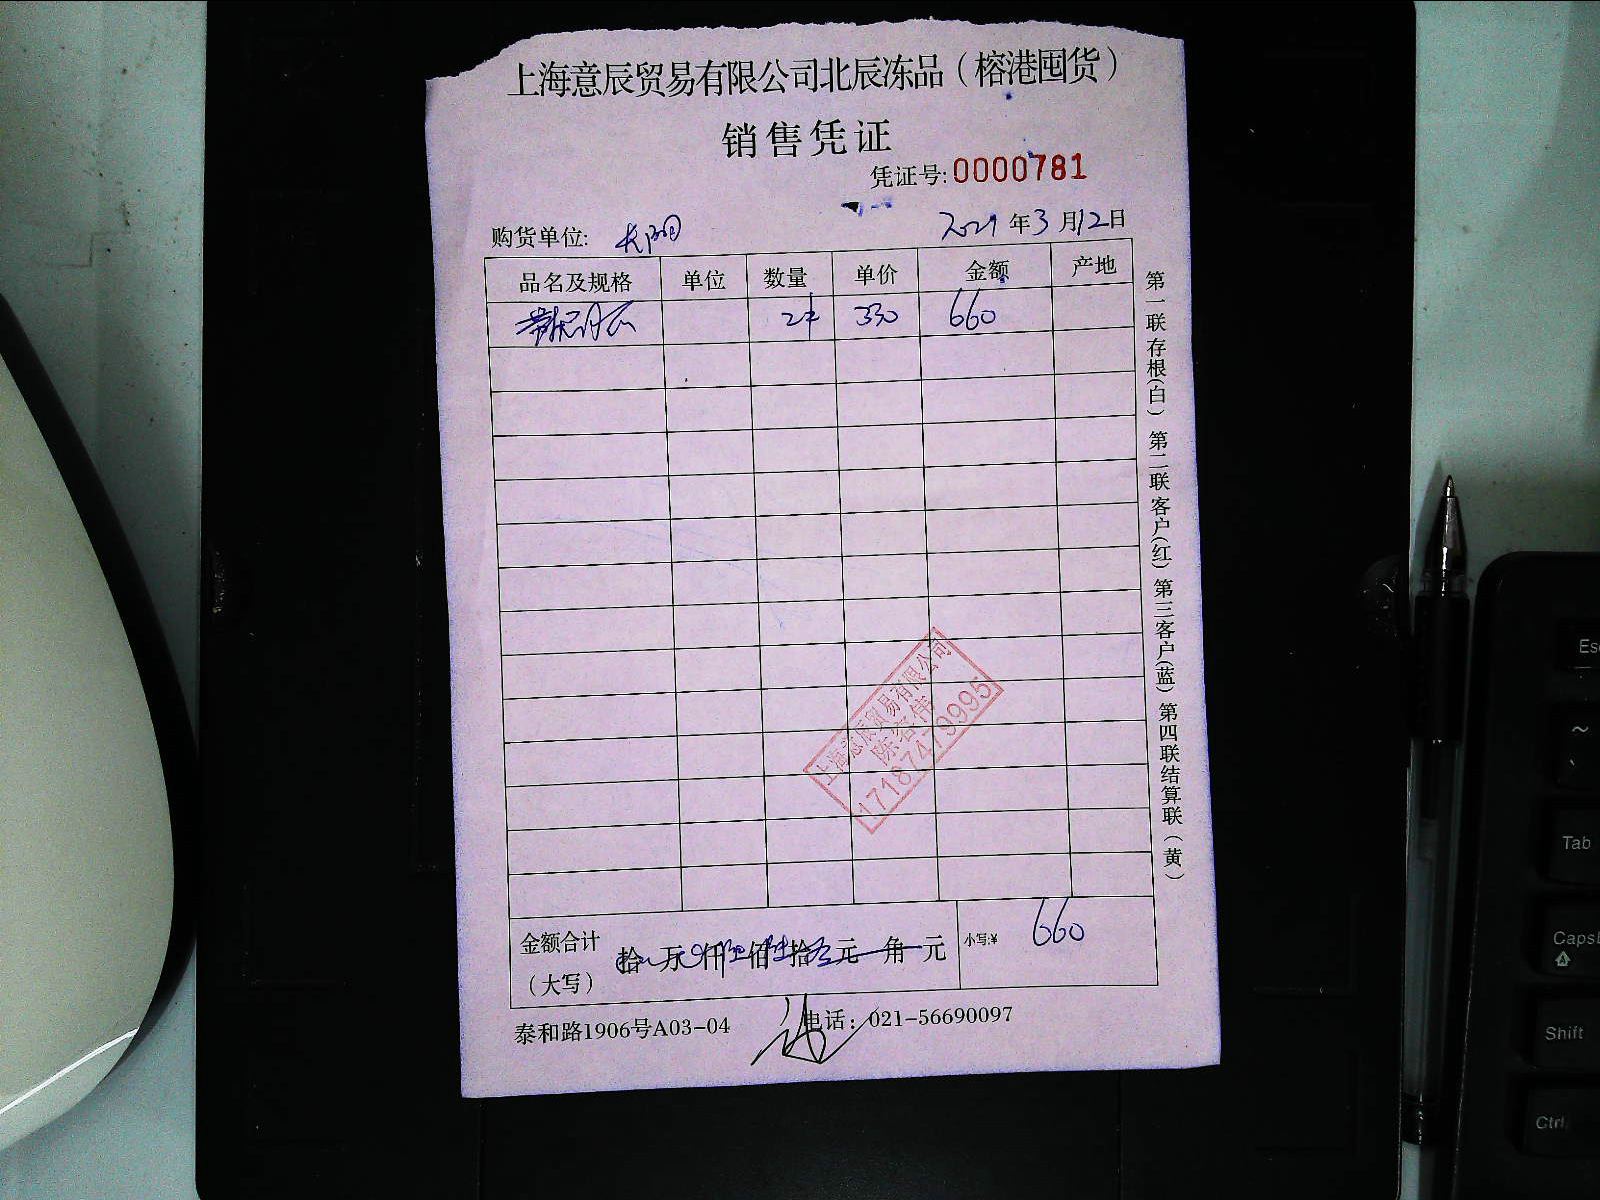 上海意辰贸易有限公司北辰冻品（榕港囤货）
销售凭证
凭证号:0000781
购货单位: 长阳 2021年3月12日
品名及规格 单位 数量 单价 金额 产地
2件 330 660
金额合计（大写） 拾 万 仟 佰 拾 元 角 元 小写:¥ 660
泰和路1906号A03-04 电话：021-56690097
第一联存根(白) 第二联客户(红) 第三客户(蓝) 第四联结算联(黄)
上海意辰贸易有限公司
17187479995
Esc
~
Tab
Caps
Shift
Ctrl